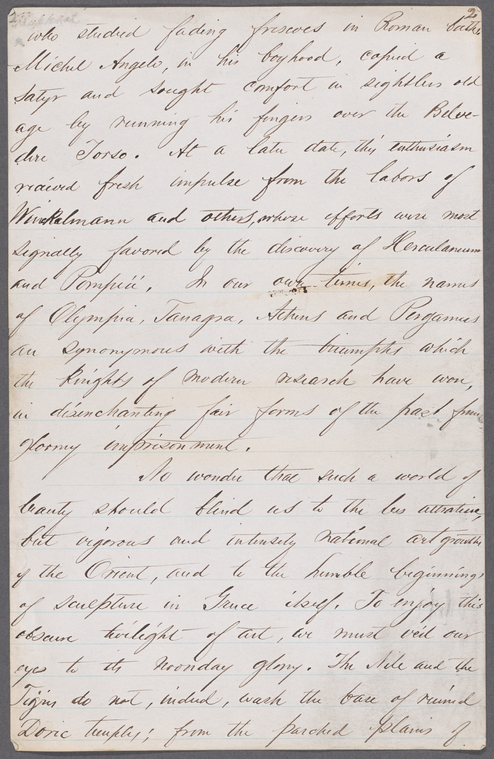 2
who studied fading frescoes in Roman baths
Michel Angelo, in his boyhood, copied a
Satyr and sought comfort in sightless old
age by running his fingers over the Belve-
dere Torso. At a late date, this enthusiasm
received fresh impulse from the labors of
Winkelmann and others, whose efforts were most
signally favored by the discovery of Herculaneum
and Pompeii. In our own times, the names
of Olympia, Tanagra, Athens and Pergamus
are synonymous with the triumphs which
the Knights of modern research have won,
in disenchanting fair forms of the past from
gloomy imprisonment.
No wonder that such a world of
beauty should blind us to the less attractive,
but vigorous and intensely national art growths
of the Orient, and to the humble beginnings
of sculpture in Greece itself. To enjoy this
obscure twilight of art, we must veil our
eyes to its noonday glory. The Nile and the
Tigris do not, indeed, wash the base of ruined
Doric temples; from the parched plains of